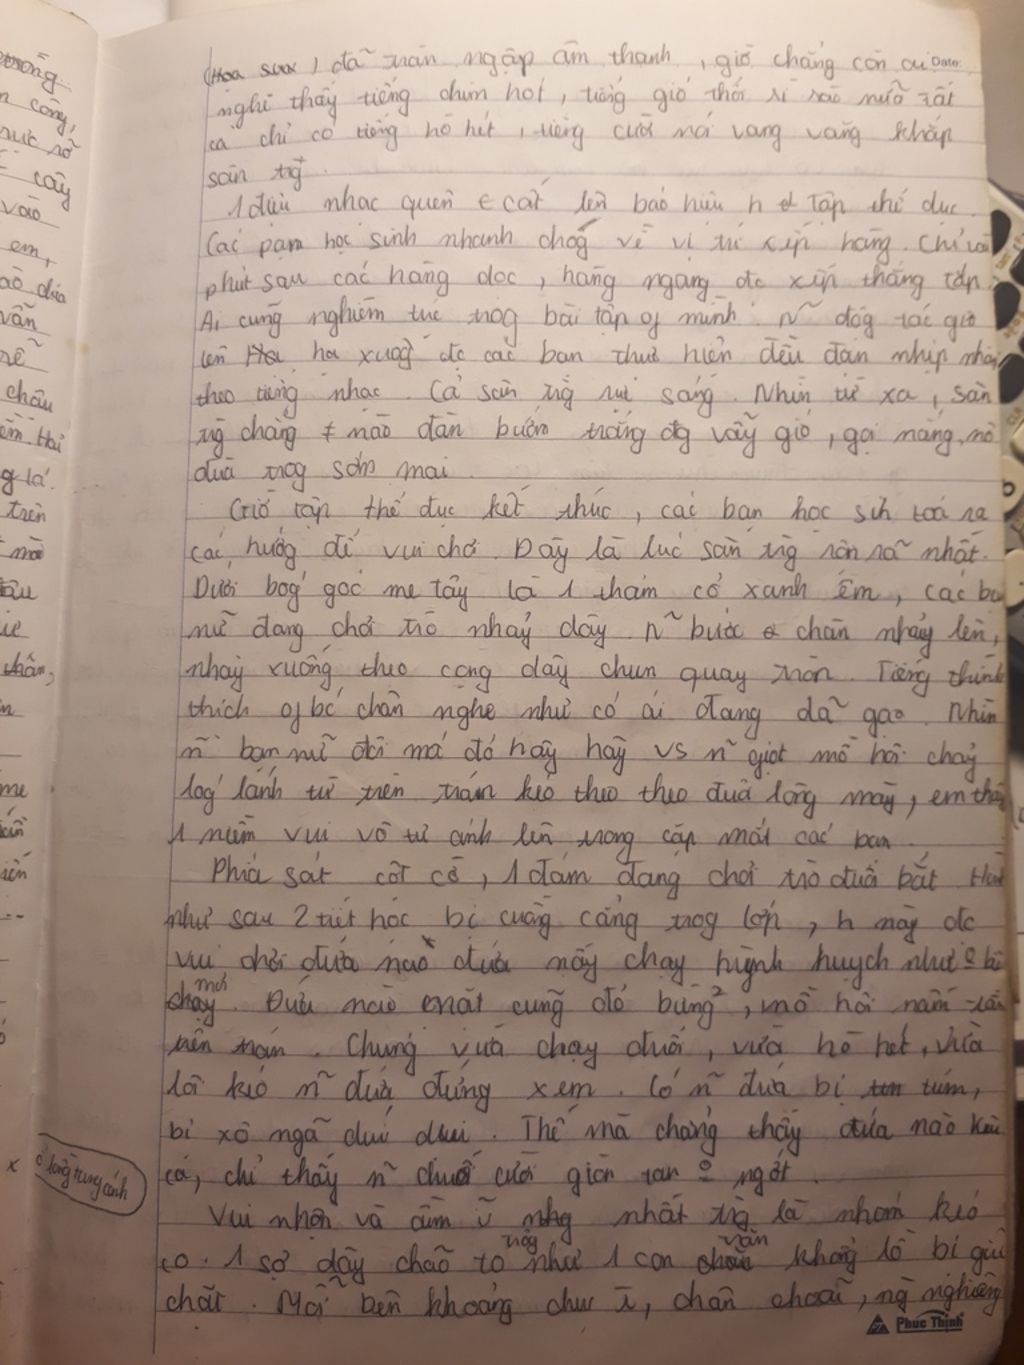 (Hoa sưa) đã tràn ngập âm thanh, giờ chẳng còn ai Date:
nghĩ thấy tiếng chim hót, tiếng gió thổi rì rào nữa rất
cả chỉ có tiếng hò hét, tiếng cười nói vang vang khắp
sân trg
1 điệu nhạc quen cất lên báo hiệu h tập thể dục.
Các bạn học sinh nhanh chóg về vị trí xếp hàng. Chỉ vài
phút sau các hàng dọc, hàng ngang đc xếp thẳng tắp.
Ai cũng nghiêm túc trog bài tập of mình. N~ độg tác giơ
lên hạ xuốg đc các bạn thực hiện đều đặn nhịp nhàng
theo tiếng nhạc. Cả sân trg rực sáng. Nhìn từ xa, sân
trg chẳng ≠ nào đàn bướm trắng đg vẫy gió, gọi nắng, nô
đùa trog sớm mai.
Giờ tập thể dục kết thúc, các bạn học sih toả ra
các hướg để vui chơi. Đây là lúc sân trg rộn rã nhất.
Dưới bóg gốc me tây là 1 thảm cỏ xanh êm, các bạn
nữ đang chơi trò nhảy dây. N~ bước chân nhảy lên,
nhảy xuống theo còng dây chun quay tròn. Tiếng thình
thịch of bc chân nghe như có ai đang dã gạo. Nhìn
n~ bạn nữ đôi má đỏ hây hây vs n~ giọt mồ hôi chảy
log lánh từ trên trán kéo theo theo đuôi lông mày, em thấy
1 niềm vui vô tư ánh lên trong cặp mắt các bạn.
Phía sát cột cờ, 1 đám đang chơi trò đuổi bắt. Hình
như sau 2 tiết học bị căng trog lớp, h này đc
vui chơi đứa nào đứa nấy chạy huỳnh huỵch như bị
mới
chạy. Đứa nào mặt cũng đỏ bừng², mồ hôi nấm rấm
trên trán. Chúng vừa chạy đuổi, vừa hò hét, vừa
lôi kéo n~ đứa đứng xem. Có n~ đứa bị túm,
bị xô ngã dúi dụi. Thế mà chẳng thấy đứa nào kêu
ca, chỉ thấy n~ chuỗi cười giòn tan ngớt.
Vui nhộn và ầm ĩ nhất trg là nhóm kéo
trôg trăn
co. 1 sợ dây chão to như 1 con khổng lồ bị giữ
chặt. Mỗi bên khoảng chục, chân choãi, ng nghiêng
Phúc Thịnh
trường
n công,
cây
vào
em,
vẫn
rễ
châu
g lá.
trên
mà
chân,
me
ở lồng tung cánh
x